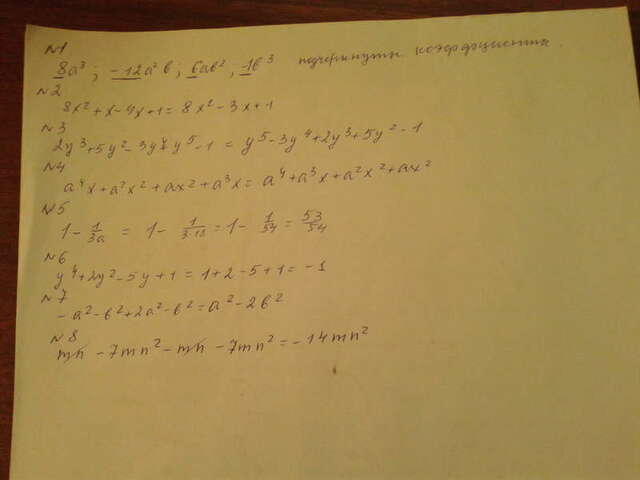 №1
8a³; -12a²b; 6ab², 1b³ подчеркнуты коэффициенты.
№2
8x²+x-4x+1=8x²-3x+1
№3
2y³+5y²-3y⁴+y⁵-1=y⁵-3y⁴+2y³+5y²-1
№4
a⁴x+a²x²+ax²+a³x=a⁴+a³x+a²x²+ax²
№5
1-1/3a=1-1/3·18=1-1/54=53/54
№6
y⁴+2y²-5y+1=1+2-5+1=-1
№7
-a²-b²+2a²-b²=a²-2b²
№8
mn-7mn²-mn-7mn²=-14mn²